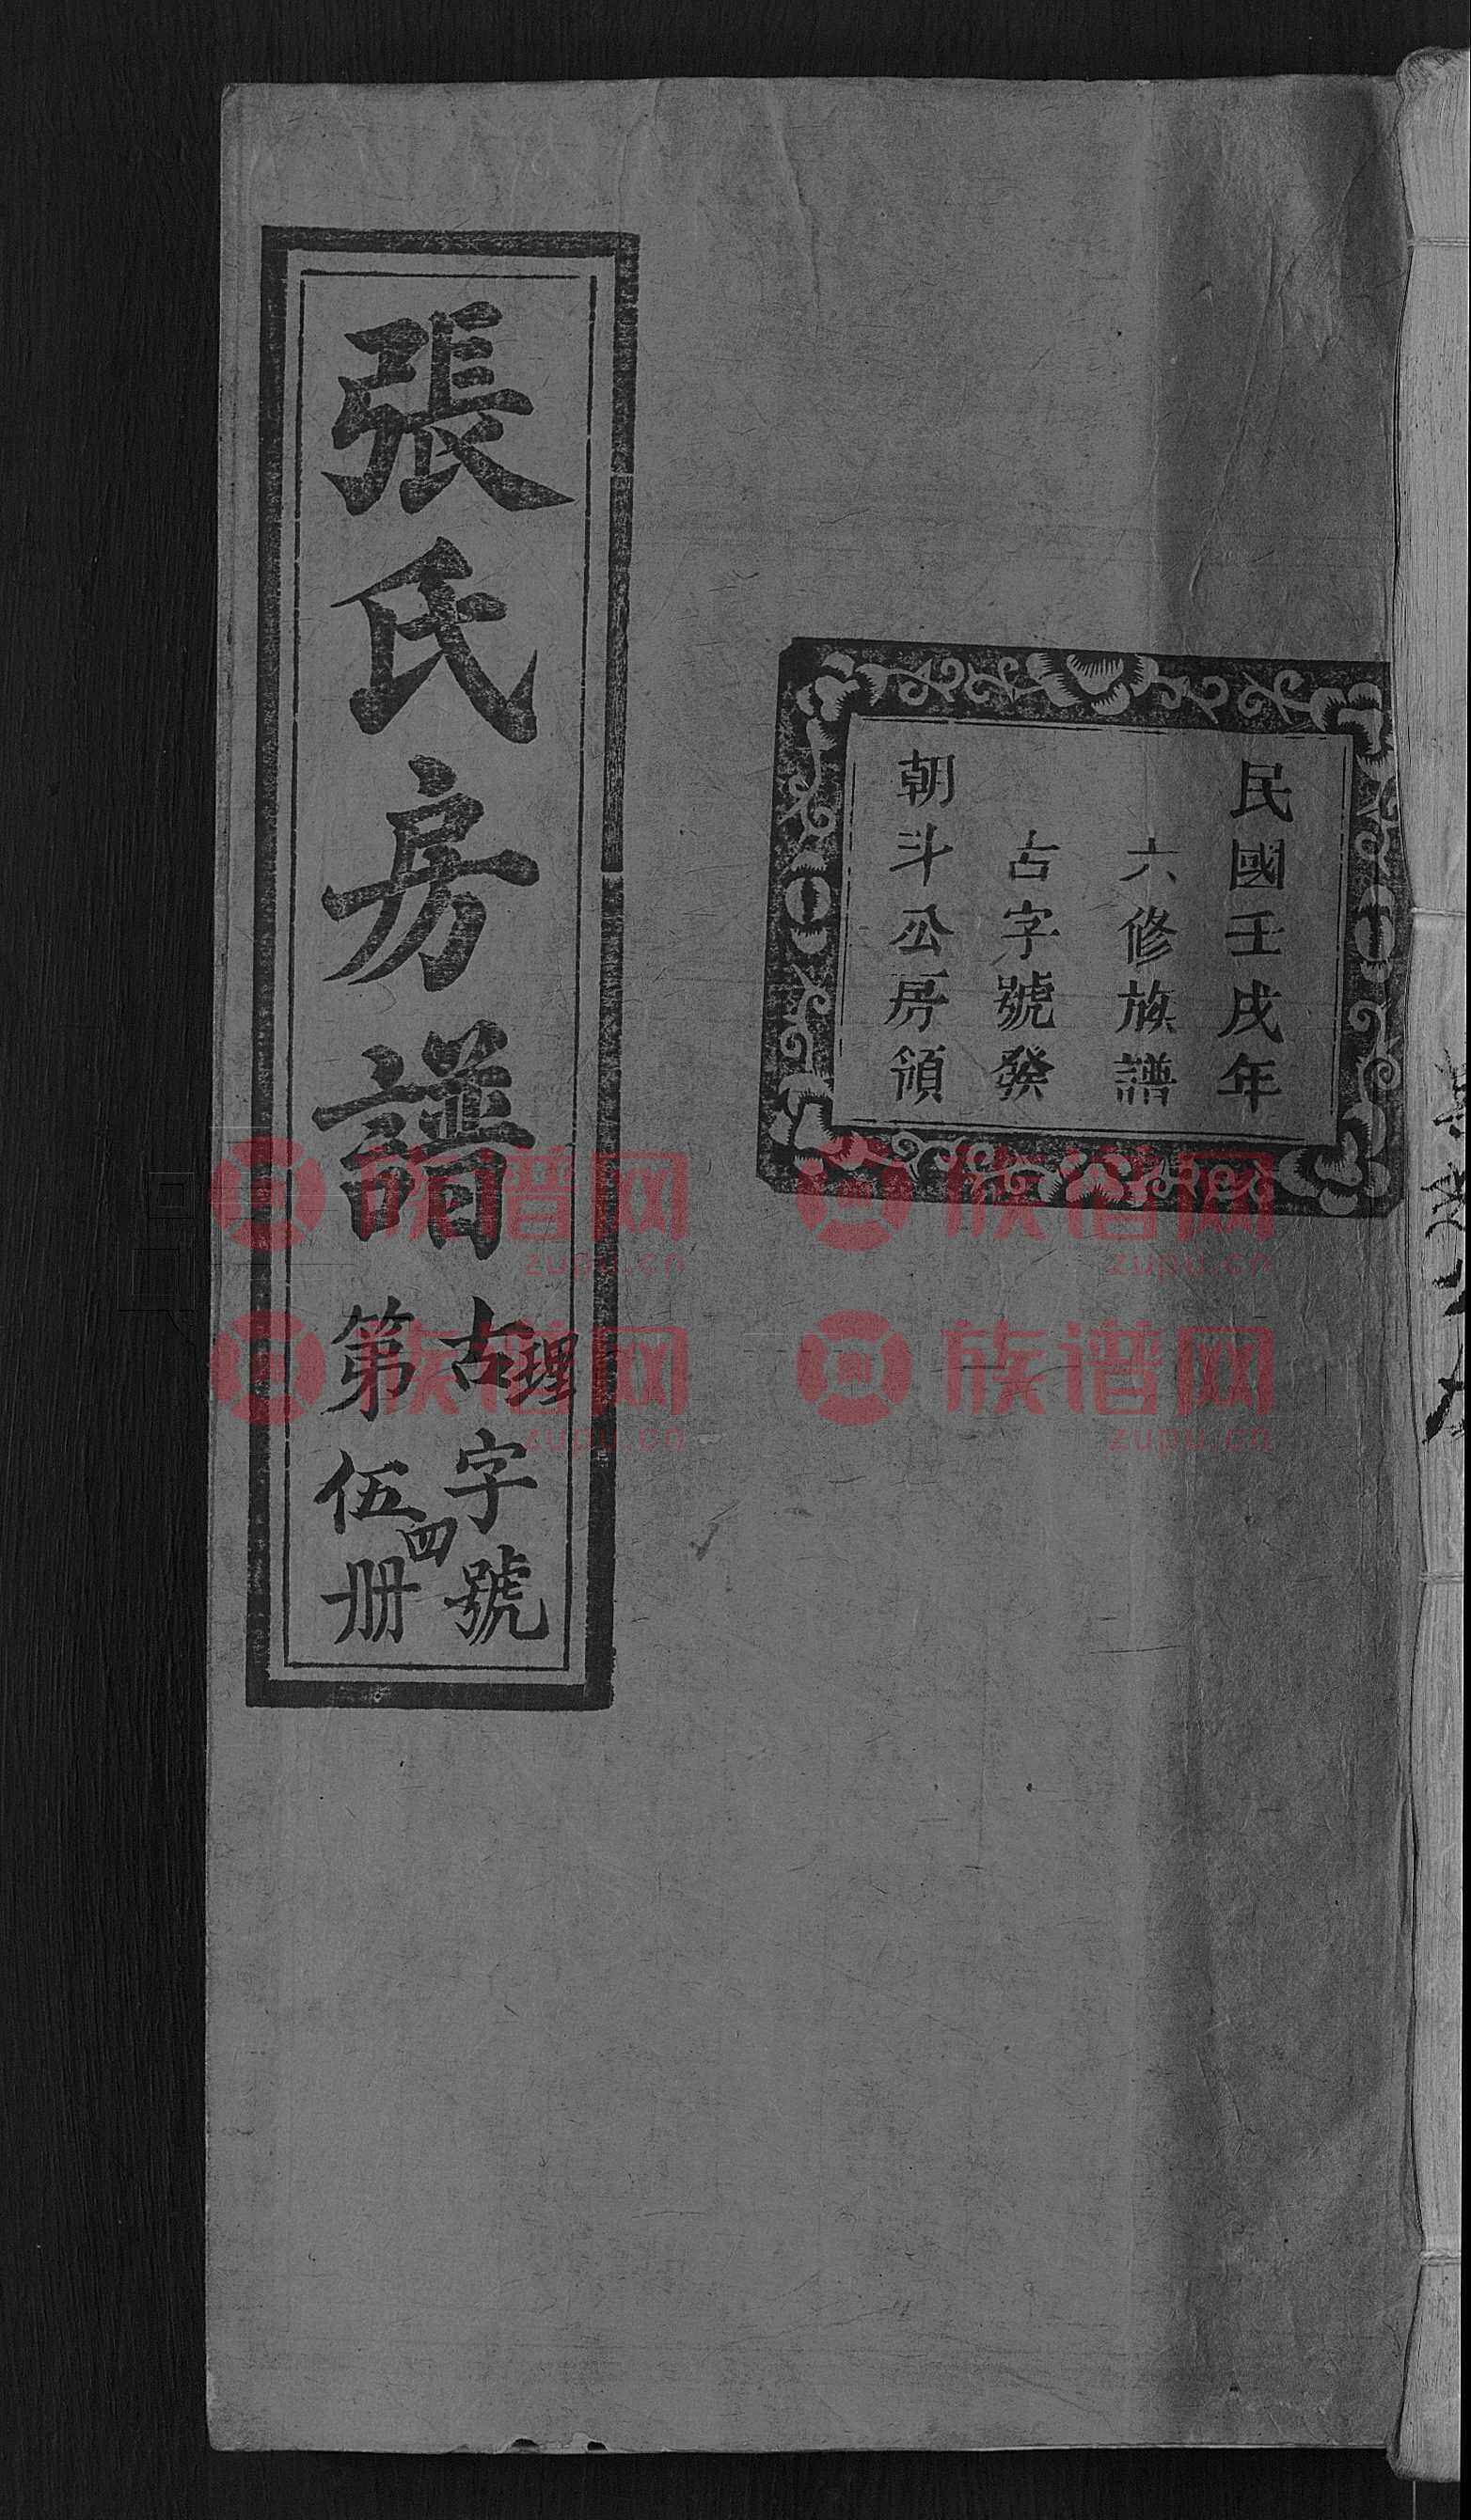 民國壬戌年
六修族譜
古字號發
朝斗公房領
張氏房譜
古字號
理
第伍册
四
族谱网 族谱网
zupu.cn zupu.cn
族谱网 族谱网
zupu.cn zupu.cn